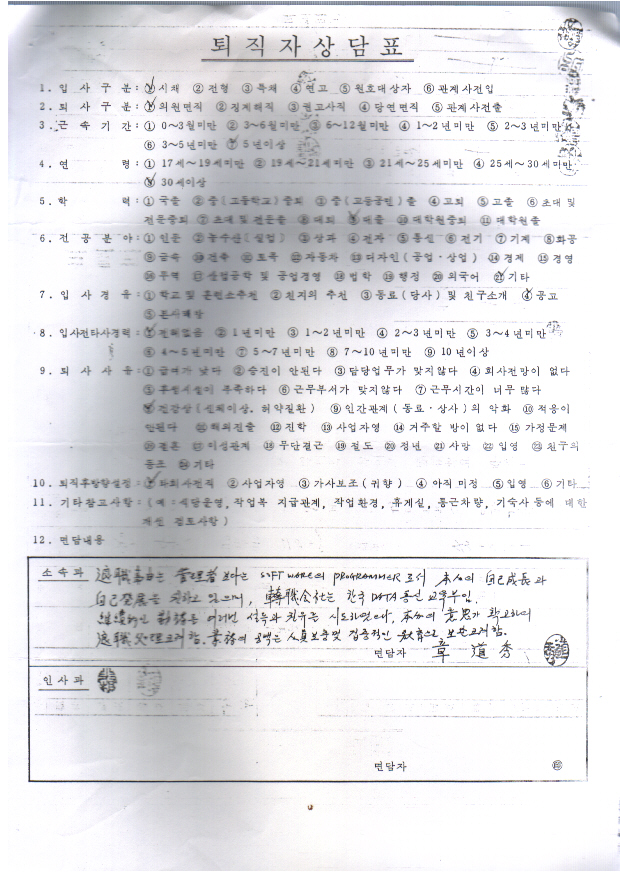 퇴직자상담표
1. 입 사 구 분 : ① 시채 ② 전형 ③ 특채 ④ 연고 ⑤ 원호대상자 ⑥ 관계사전입
2. 퇴 사 구 분 : ① 의원면직 ② 징계해직 ③ 권고사직 ④ 당연면직 ⑤ 관계사전출
3. 근 속 기 간 : ① 0~3월미만 ② 3~6월미만 ③ 6~12월미만 ④ 1~2년미만 ⑤ 2~3년미만
⑥ 3~5년미만 ⑦ 5년이상
4. 연 령 : ① 17세~19세미만 ② 19세~21세미만 ③ 21세~25세미만 ④ 25세~30세미만
⑤ 30세이상
5. 학 력 : ① 국졸 ② 중(고등학교)중퇴 ③ 중(고등공민)졸 ④ 고퇴 ⑤ 고졸 ⑥ 초대 및
전문중퇴 ⑦ 초대 및 전문졸 ⑧ 대퇴 ⑨ 대졸 ⑩ 대학원중퇴 ⑪ 대학원졸
6. 전 공 분 야 : ① 인문 ② 농수산(실업) ③ 상과 ④ 전자 ⑤ 통신 ⑥ 전기 ⑦ 기계 ⑧ 화공
⑨ 금속 ⑩ 건축 ⑪ 토목 ⑫ 자동차 ⑬ 디자인(공업·상업) ⑭ 경제 ⑮ 경영
⑯ 무역 ⑰ 산업공학 및 공업경영 ⑱ 법학 ⑲ 행정 ⑳ 외국어 ㉑ 기타
7. 입 사 경 유 : ① 학교 및 훈련소추천 ② 친지의 추천 ③ 동료(당사) 및 친구소개 ④ 공고
⑤ 본사해당
8. 입사전타사경력 : ① 전혀없음 ② 1년미만 ③ 1~2년미만 ④ 2~3년미만 ⑤ 3~4년미만
⑥ 4~5년미만 ⑦ 5~7년미만 ⑧ 7~10년미만 ⑨ 10년이상
9. 퇴 사 사 유 : ① 급여가 낮다 ② 승진이 안된다 ③ 담당업무가 맞지않다 ④ 회사전망이 없다
⑤ 후생시설이 부족하다 ⑥ 근무부서가 맞지않다 ⑦ 근무시간이 너무 많다
⑧ 건강상(신체이상, 허약질환) ⑨ 인간관계(동료·상사)의 악화 ⑩ 적응이
안된다 ⑪ 해외진출 ⑫ 진학 ⑬ 사업자영 ⑭ 거주할 방이 없다 ⑮ 가정문제
⑯ 결혼 ⑰ 이성관계 ⑱ 무단결근 ⑲ 절도 ⑳ 정년 ㉑ 사망 ㉒ 입영 ㉓ 친구의
동조 ㉔ 기타
10. 퇴직후방향설정 : ① 타회사전직 ② 사업자영 ③ 가사보조(귀향) ④ 아직 미정 ⑤ 입영 ⑥ 기타
11. 기타참고사항 : (예 : 식당운영, 작업복 지급관계, 작업환경, 휴게실, 통근차량, 기숙사 등에 대한
개선 검토사항)
12. 면담내용
소속과 退職事由는 管理者 보다는 SOFTWARE의 PROGRAMMER로서 本人의 自己成長과
自己発展을 원하고 있으며, 轉職会社는 한국 DATA통신 교육부임.
여러번 설득과 권유를 시도하였으나, 本人의 意思가 확고하여
退職 처리코저 함.
면담자 章 道 秀
인사과
면담자 ㊞